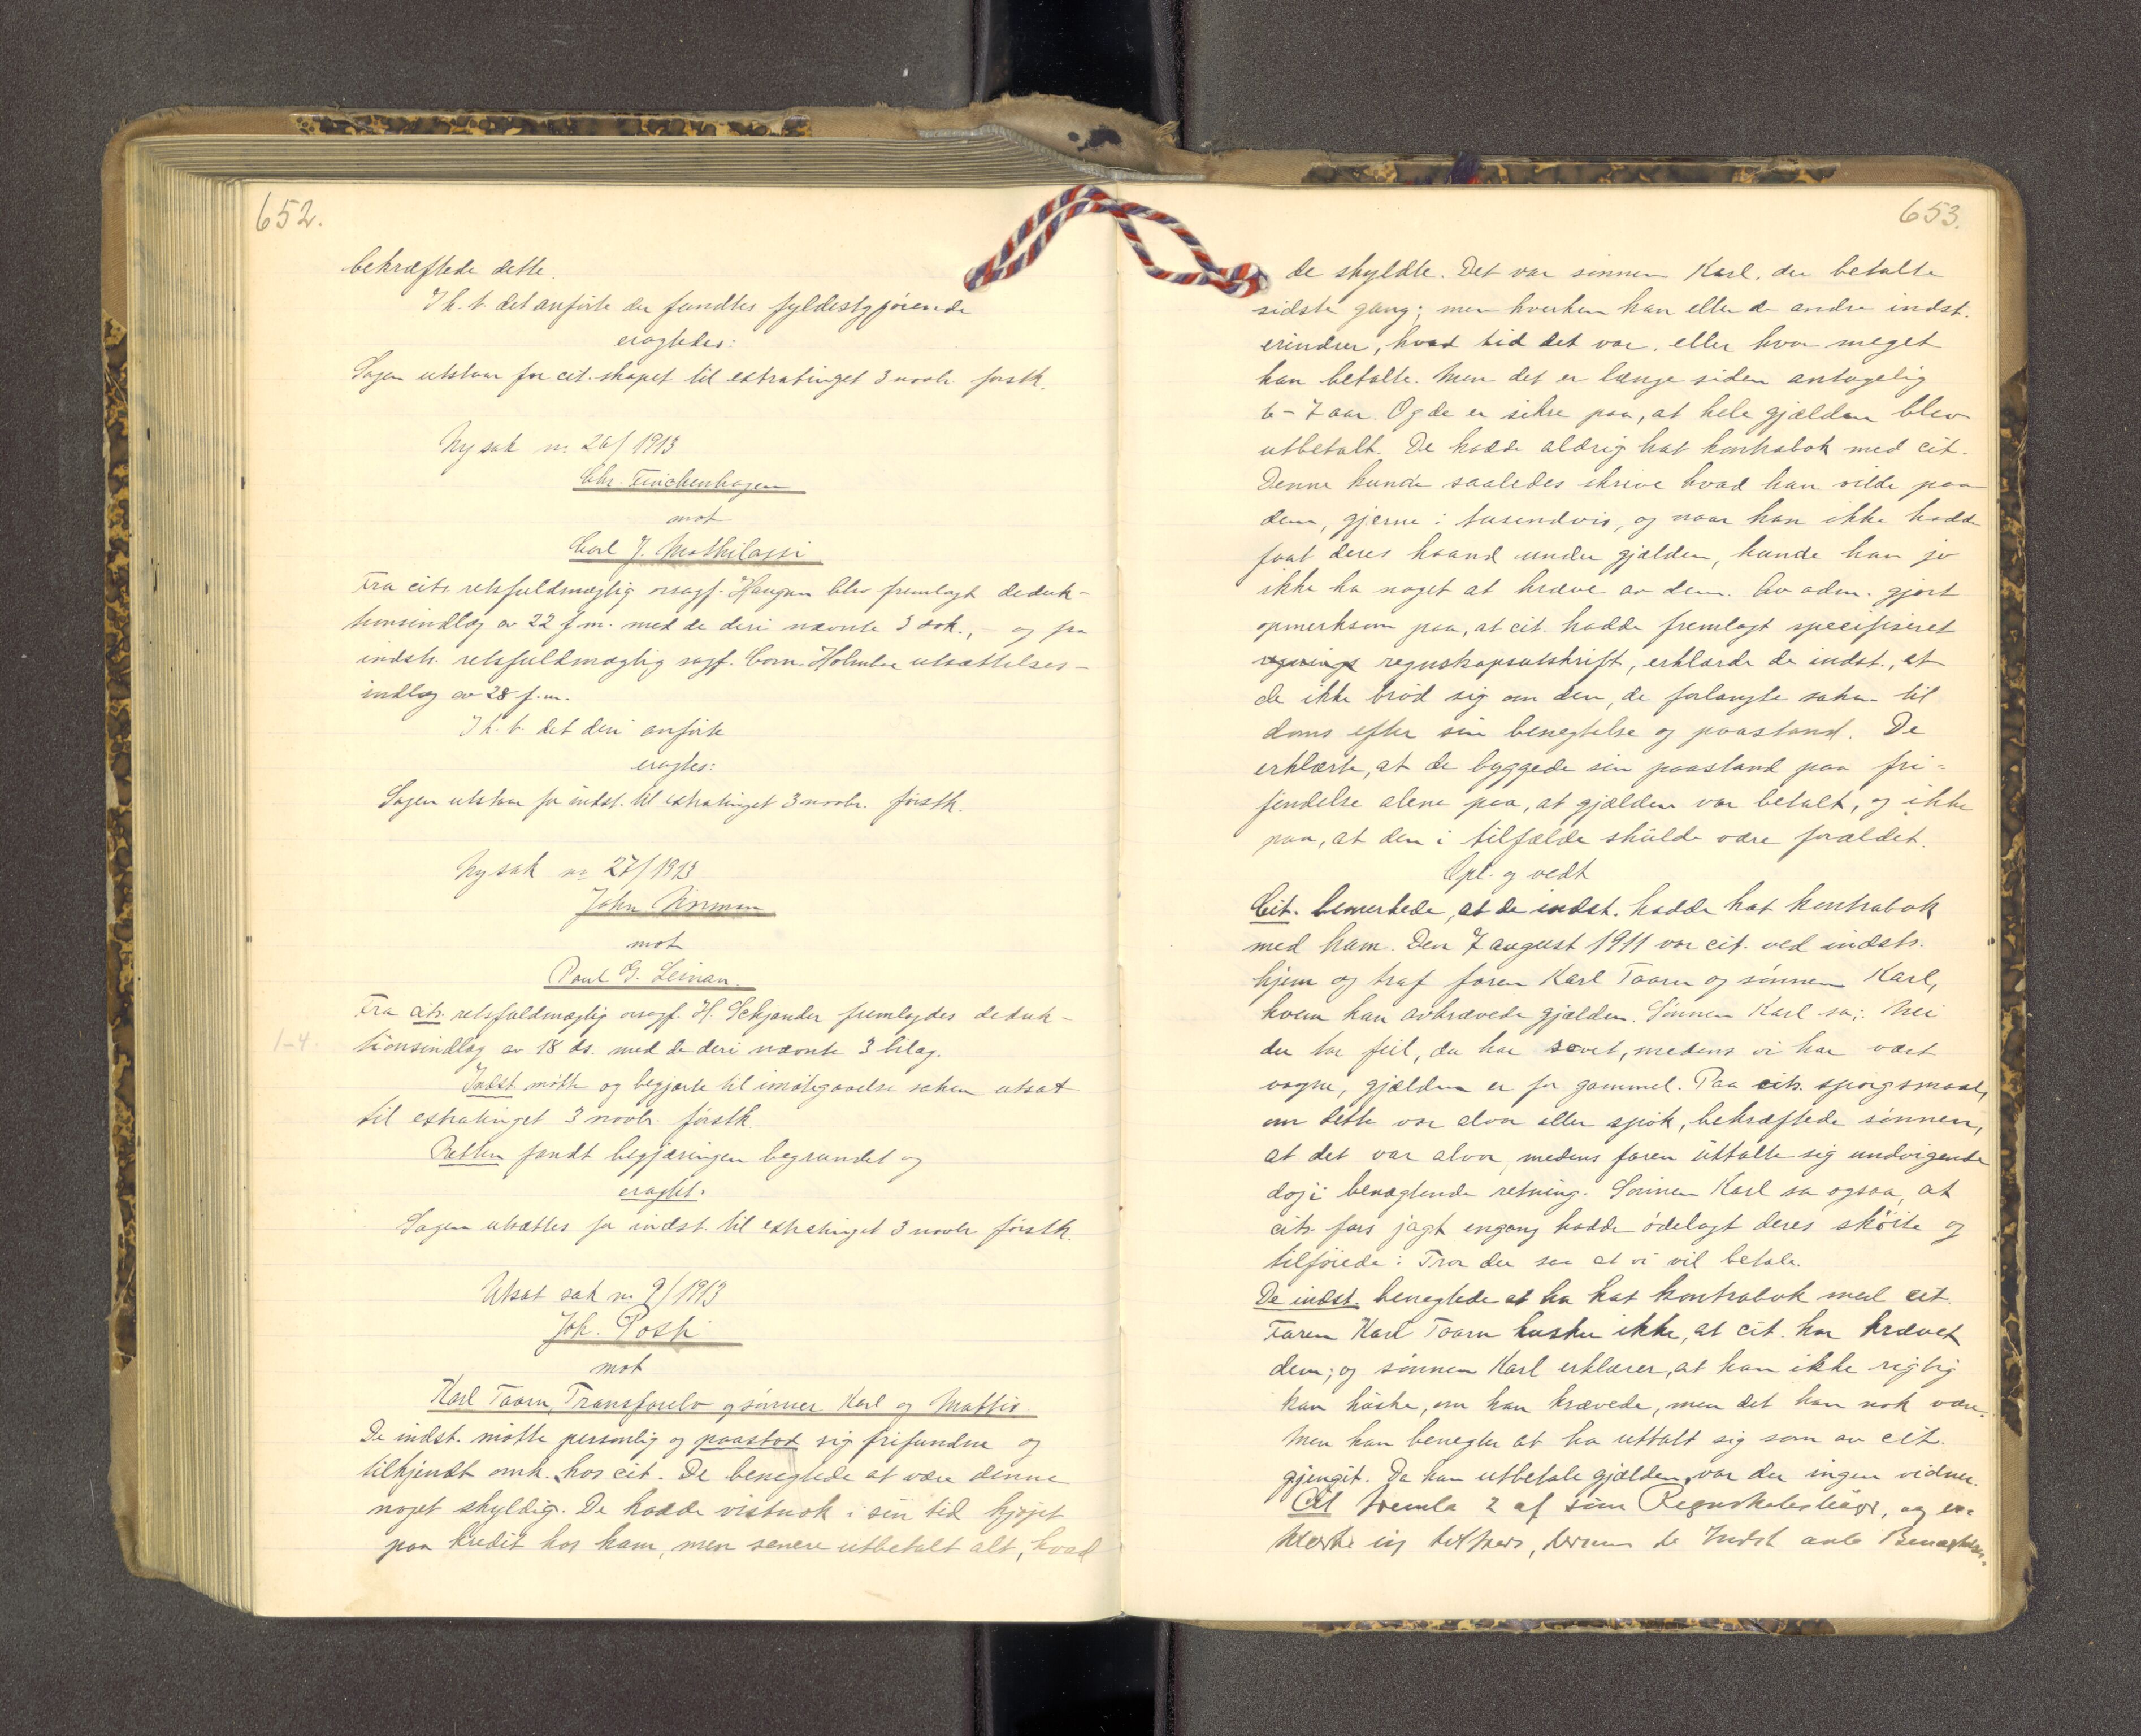 652.
bekræftede dette.
I h. t. det anførte der fandtes fyldestgjørende
eragtedes:
Sagen utstaar for cit.skapet til extratinget 3 novbr. førstk.
Ny sak nr. 26/1913
Chr. Finckenhagen
mot
Carl J. Mathilassi
Fra cits. retsfuldmægtig orsagf. Haugan blev fremlagt deduk-
tionsindlæg av 22 f.m. med de deri nævnte 3 dok., – og fra
indsts. retsfuldmægtig sagf. Corn. Holmboe utsættelses-
indlæg av 28 f.m.
I h. t. det deri anførte
eragtes:
Sagen utstaar for indst. til extratinget 3 novbr. førstk.
Ny sak nr. 27/1913
John Norman
mot
Paul G. Leinan.
Fra cits. retsfuldmægtig orsagf. H. Schjander fremlagdes deduk-
1-4. tionsindlæg av 18 ds. med de deri nævnte 3 bilag.
Indst. møtte og begjærte til imøtegaaelse saken utsat
til extratinget 3 novbr. førstk.
Retten fandt begjæringen begrundet og
eragtet:
Sagen utsættes for indst. til extratinget 3 novbr. førstk.
Utsat sak nr. 9/1913
Joh. Posti
mot
Karl Taarn, Transfarelv og sønner Karl og Mattis.
De indst. møtte personlig og paastod sig frifundne og
tilkjendt omk. hos cit. De benegtede at være denne
noget skyldig. De hadde vistnok i sin tid kjøpt
paa kredit hos ham, men senere utbetalt alt, hvad
653.
de skyldte. Det var sønnen Karl, der betalte
sidste gang; men hverken han eller de andre indst.
erindrer, hvad tid det var, eller hvor meget
han betalte. Men det er længe siden antagelig
6-7 aar. Og de er sikre paa, at hele gjælden blev
utbetalt. De hadde aldrig hat kontrabok med cit.
Denne kunde saaledes skrive hvad han vilde paa
dem, gjerne i tusendvis, og naar han ikke hadde
faat deres haand under gjælden, kunde han jo
ikke ha noget at kræve av dem. Av adm. gjort
opmerksom paa, at cit. hadde fremlagt specifiseret
regnskapsutskrift, erklærde de indst., at
de ikke brød sig om den, de forlangte saken til
doms efter sin benegtelse og paastand. De
erklærte, at de byggede sin paastand paa fri-
findelse alene paa, at gjælden var betalt, og ikke
paa, at den i tilfælde skulde være forældet.
Opl. og vedt.
Cit. bemerkede, at de indst. hadde hat kontrabok
med ham. Den 7 august 1911 var cit. ved indsts.
hjem og traf faren Karl Taarn og sønnen Karl,
hvem han avkrævede gjælden. Sønnen Karl sa: Nei
du tar feil, du har sovet, medens vi har vært
vaagne, gjælden er for gammel. Paa cits. spørgsmaal,
om dette var alvor eller spøk, bekræftede sønnen,
at det var alvor, medens faren uttalte sig undvigende
dog i benægtende retning. Sønnen Karl sa ogsaa, at
cits. fars jagt engang hadde ødelagt deres skøite og
tilføiede: Tror du saa at vi vil betale.
De indst. benegtede at ha hat kontrabok med cit.
Faren Karl Taarn husker ikke, at cit. har krævet
dem; og sønnen Karl erklærer, at han ikke rigtig
kan huske, om han krævede, men det kan nok være.
Men han benegter at ha uttalt sig som av cit.
gjengit. Da han utbetalte gjælden, var der ingen vidner.
Cit. fremla 2 af sine Regnskabsbøger, og er-
klærte sig dertil, de Indst